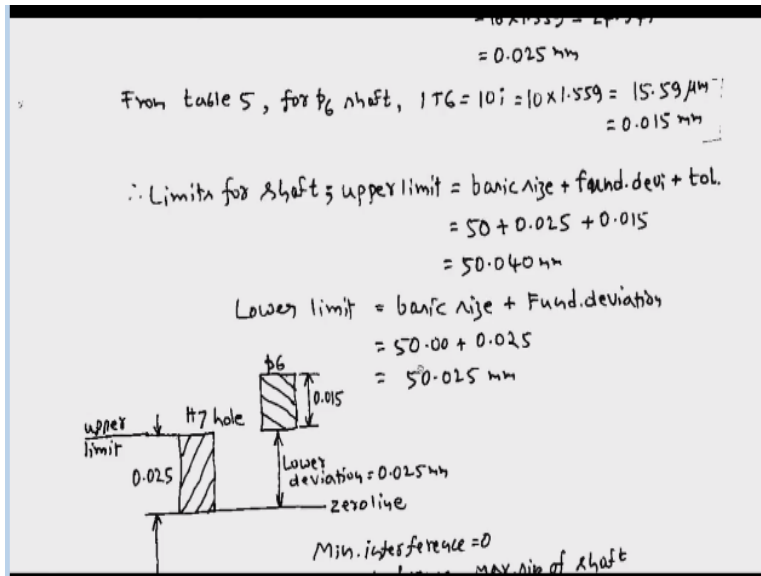 = 0.025 mm
From table 5, for p6 shaft, IT6 = 10i = 10 x 1.559 = 15.59 μm
= 0.015 mm
∴ Limits for shaft; upper limit = basic size + found. devi + tol.
= 50 + 0.025 + 0.015
= 50.040 mm
Lower limit = basic size + Fund. deviation
= 50.00 + 0.025
= 50.025 mm
p6
0.015
H7 hole
upper
limit
0.025
Lower
deviation = 0.025 mm
zero line
Min. interference = 0
max. size of shaft